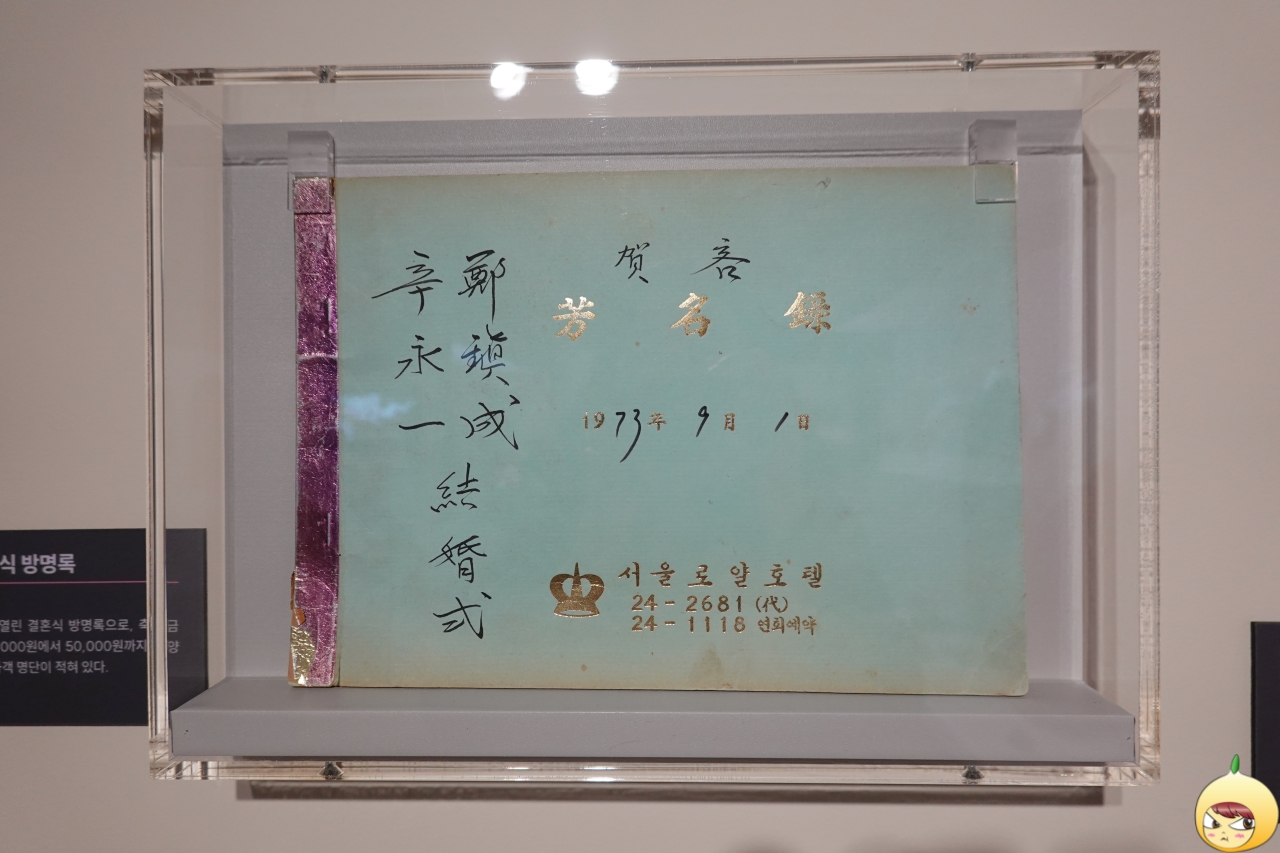 賀 客
芳 名 錄
鄭鎭成
辛永一
結婚式
1973年 9月 1日
서울로얄호텔
24-2681 (代)
24-1118 연회예약
식 방명록
열린 결혼식 방명록으로, 축 금
000원에서 50,000원까지 양
객 명단이 적혀 있다.